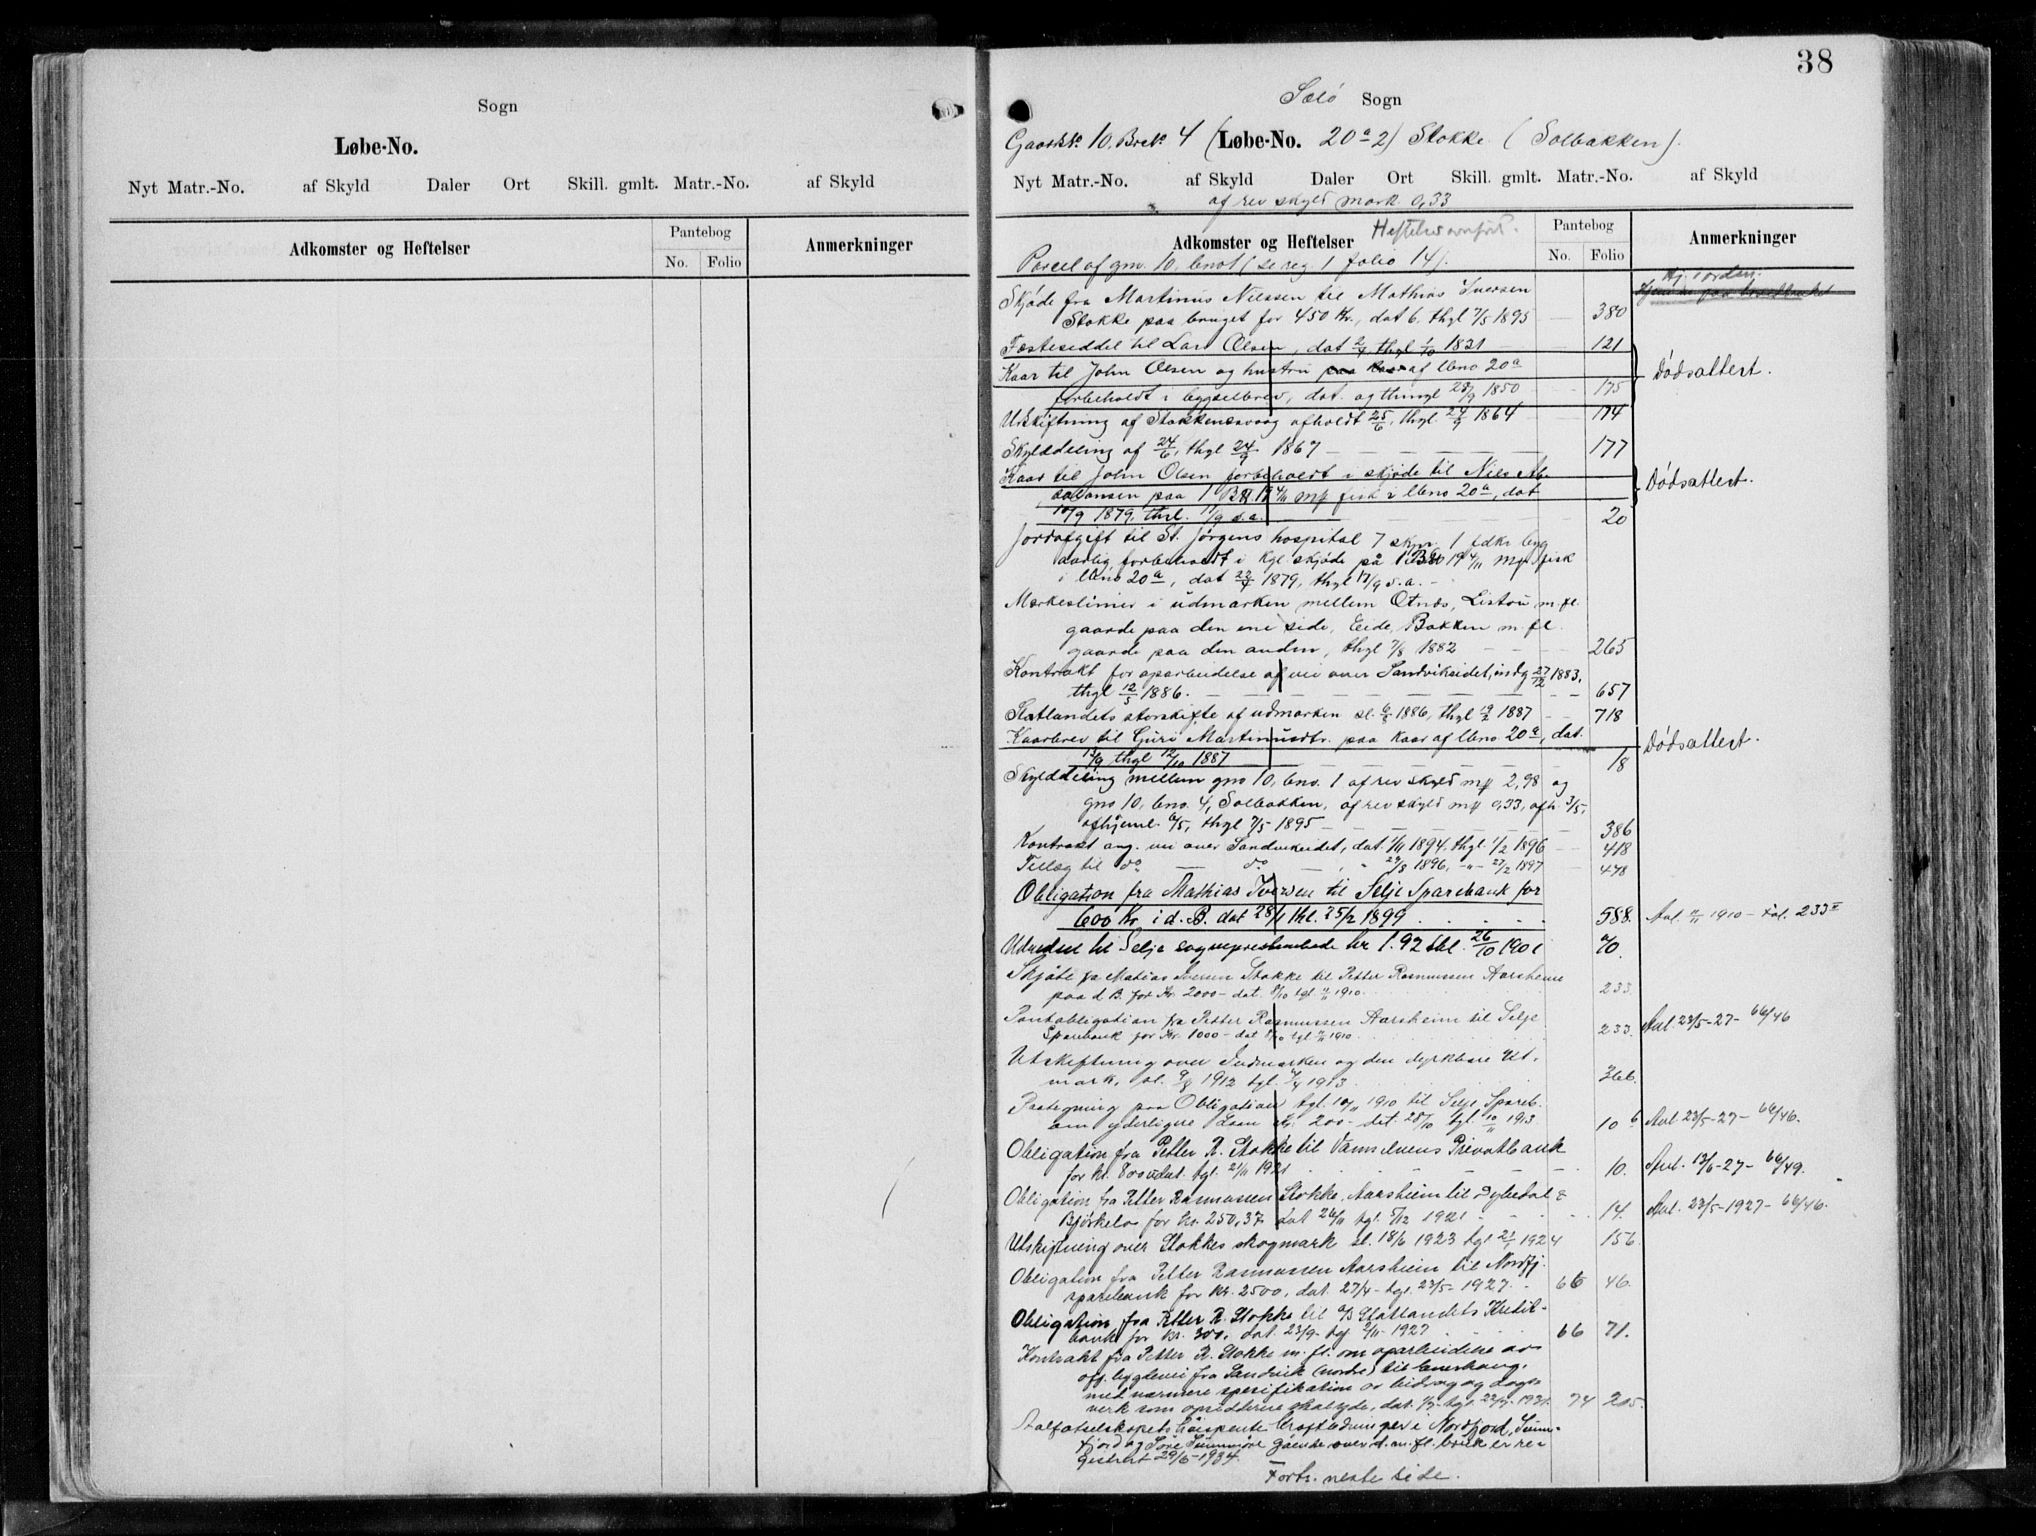 Sogn
Løbe-No.
Nyt Matr.-No. af Skyld Daler Ort Skill. gmlt. Matr.-No. af Skyld
Adkomster og Heftelser Pantebog Anmerkninger
No. Folio
38
Sælø Sogn
Gaards No. 10. Brs No. 4 (Løbe-No. 20 a 2) Stokke (Solbakken).
Nyt Matr.-No. af Skyld Daler Ort Skill. gmlt. Matr.-No. af Skyld
af rev skyld mark 0,33
Adkomster og Heftelser Pantebog Anmerkninger
No. Folio
Parcel af gno. 10, bno 1 (se reg 1 folio 14).
Skjøde fra Martinus Nilssen til Mathias Iversen
Stokke paa bruget for 450 Kr., dat 6. thgl 7/5 1895 380
Festeseddel til Lars Olsen, dat thgl 1/10 1821 121
Kaar til John Olsen og hustru af lbno 20 a Dødsattest.
forbeholdt i bygselbrev, dat. og thingl 28/9 1850 175
Udskiftning af Stokkensvaag afholdt 25/6, thgl 24/9 1864 174
Skylddeling af 24/6, thgl 24/9 1867 177
Kaar til John Olsen forbeholdt i skjøde til Nils Ab- Dødsattest.
paa 1 i lbno 20 a, dat
10/9 1879, thgl. 11/9 s.a. 20
Jordafgift til St. Jørgens hospital 7 skpr. 1 fdkr byg
aarlig forbeholdt i kgl. skjøde på fisk
i lbno 20 a, dat 22/7 1879, thgl 11/9 s.a.
Merkeslinier i udmarken mellem Otnes, Listou m.fl.
gaarde paa den ene side, Eide, Bakken m.fl.
gaarde paa den anden, thgl 7/8 1882 265
Kontrakt for oparbeidelse af vei over Sandvikeidet, indg 27/12 1883,
thgl 12/5 1886. 657
Statlandets storskifte af udmarken sl. 6/8 1886, thgl 19/2 1887 718
Kaarbrev til Guri Martinusdtr. paa Kaar af lbno 20 a, dat. Dødsattest.
13/9 thgl 12/10 1887 18
Skylddeling mellem gno 10, bno. 1 af rev skyld mk 2,98 og
gno 10, bno. 4, Solbakken, af rev skyld mk 0,33, afh. 3/5,
afhjeml. 6/5, thgl 7/5 1895 386
Kontrakt ang. vei over Sandvikeidet, dat 1/11 1894, thgl. 1/2 1896 418
Tillæg til do do 29/8 1896, -"- 27/2 1897 478
Obligation fra Mathias Iversen til Selje Sparebank for
600 Kr i d. B. dat 28/1 thl. 25/2 1899 588. Avl. 11/11 1910 - Fol. 233
Udredsel til Selje sogneprestembede kr 1.92 thl. 26/10 1901 70.
Skjøte fra Matias Iversen Stokke til Petter Rasmussen Aarsheim
paa d. B. for Kr. 2000 - dat. 8/10 tgl. 11/11 1910. 233.
Pantobligation fra Petter Rasmussen Aarsheim til Selje
Sparebank for Kr. 1000 - dat 8/10 tgl 11/11 1910. 233. Avl. 23/5-27 - 66/46
Utskiftning over Indmarken og den dyrkbare Ut-
mark, sl. 9/8 1912 tgl. 4/4 1913 366.
Paategning paa Obligation tgl. 10/11 1910 til Selje Spareb.
om yderligere Laan Kr. 200 - dat. 28/10 tgl. 10/11 1913 10 b Avl. 23/5-27 - 66/46.
Obligation fra Petter R. Stokke til Vannelvens Privatbank
for kr. 800 udat. tgl. 21/11 1921 10. Avl. 13/6-27 - 66/49.
Obligation fra Petter Rasmussen Stokke, Aarsheim til Dybedal &
Bjørkelo for kr. 250,37 dat 26/11 tgl. 5/12 1921 14. Avl. 23/5-1927 - 66/46.
Utskiftning over Stokkes skogmark sl. 18/6 1923 tgl. 21/1 1924 156.
Obligation fra Petter Rasmussen Aarsheim til Nordfj.
sparebank for kr. 2500, dat. 27/4 - tgl. 23/5 - 1927. 66 46.
Obligation fra Petter R. Stokke til A/S Statlandets Kredit-
bank for kr. 300, dat 23/9 - tgl 1927 66 71.
Kontrakt fra Petter R. Stokke m.fl. om oparbeidelse av
off. bygdevei fra Sandvik (nordre) til
med nærmere spesifikation av bidrag og dags-
verk som opsitterne skal yde, dat. tgl. 22/7 1931. 74 205.
Aalfotselskapets høispente kraftledninger i Nordfjord, Sunn-
fjord og Søre Sunnmøre gående over d. m.fl. bruk er re-
gistrert 29/6-1934.
Forts. neste side.